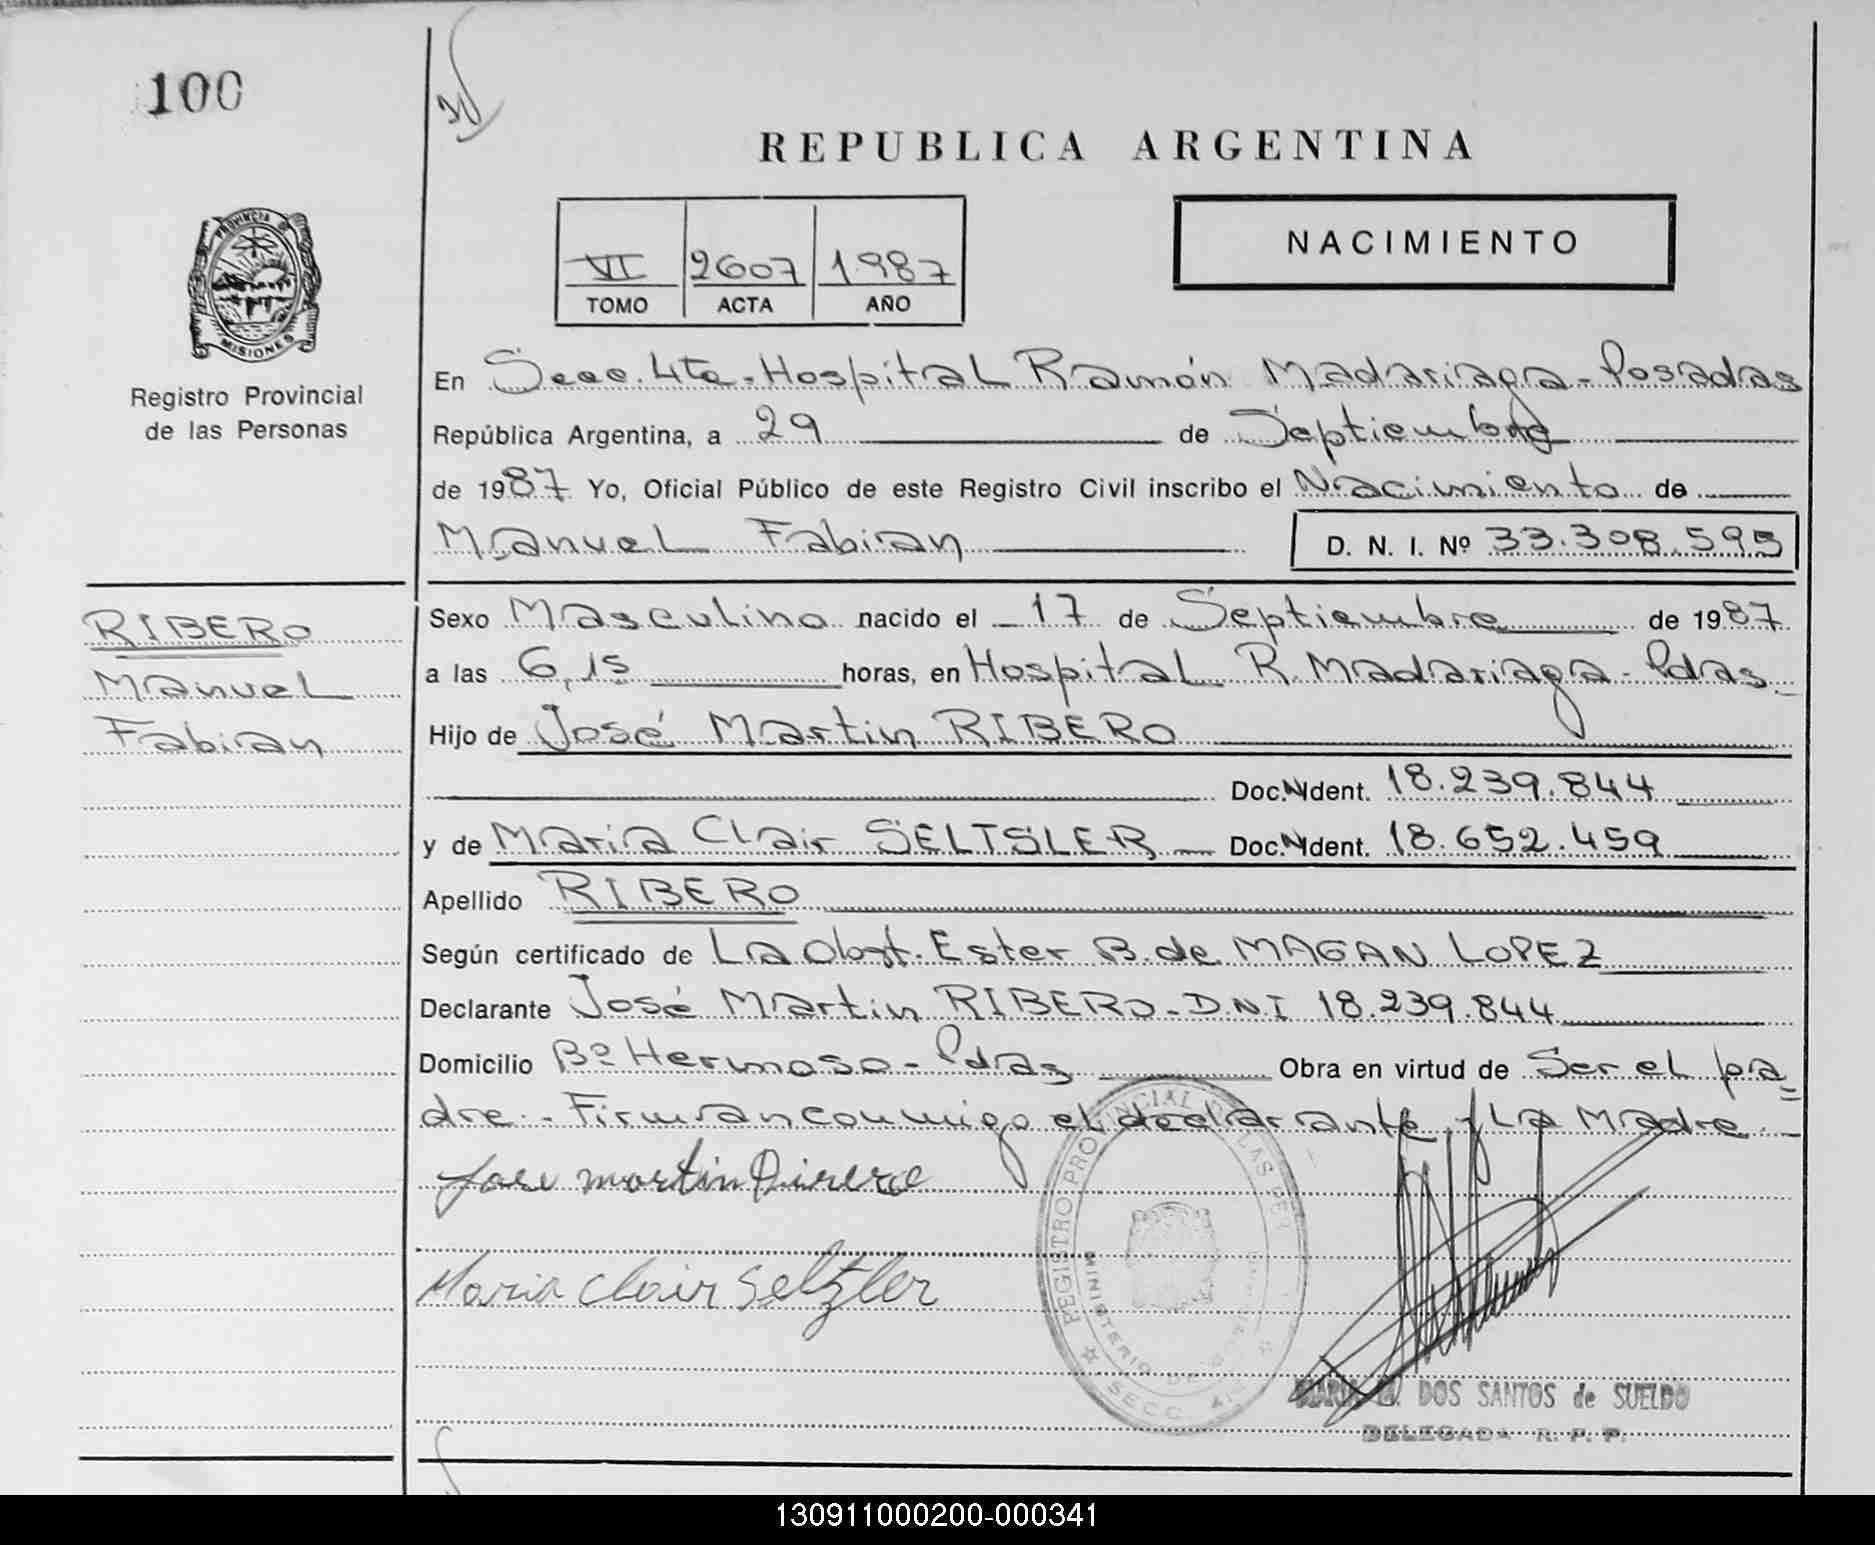 100
REPUBLICA ARGENTINA
VI 2607 1.987
TOMO ACTA AÑO
NACIMIENTO
PROVINCIA DE
MISIONES
Registro Provincial
de las Personas
En Secc. 4ta. Hospital Ramón Madariaga - Posadas
República Argentina, a 29 de Septiembre
de 1987 Yo, Oficial Público de este Registro Civil inscribo el Nacimiento de
Manuel Fabian D. N. I. Nº 33.308.595
RIBERO
Manuel
Fabian
Sexo Masculino nacido el 17 de Septiembre de 1987
a las 6,15 horas, en Hospital R. Madariaga - Pdas.
Hijo de José Martin RIBERO
Doc. Ident. 18.239.844
y de Maria Clair SELTSLER Doc. Ident. 18.652.459
Apellido RIBERO
Según certificado de La Obst. Ester B. de MAGAN LOPEZ
Declarante José Martin RIBERO - D.N.I 18.239.844
Domicilio Bº Hermoso - Pdas Obra en virtud de Ser el pa-
dre. - Firman conmigo el declarante y La Madre
Jose martin Rivero
Maria Clair Seltzler
REGISTRO PROVINCIAL DE LAS PER
MINISTERIO DE GOBIERNO
SECC. 4
DOS SANTOS de SUELDO
DELEGADA R. P. P.
130911000200-000341